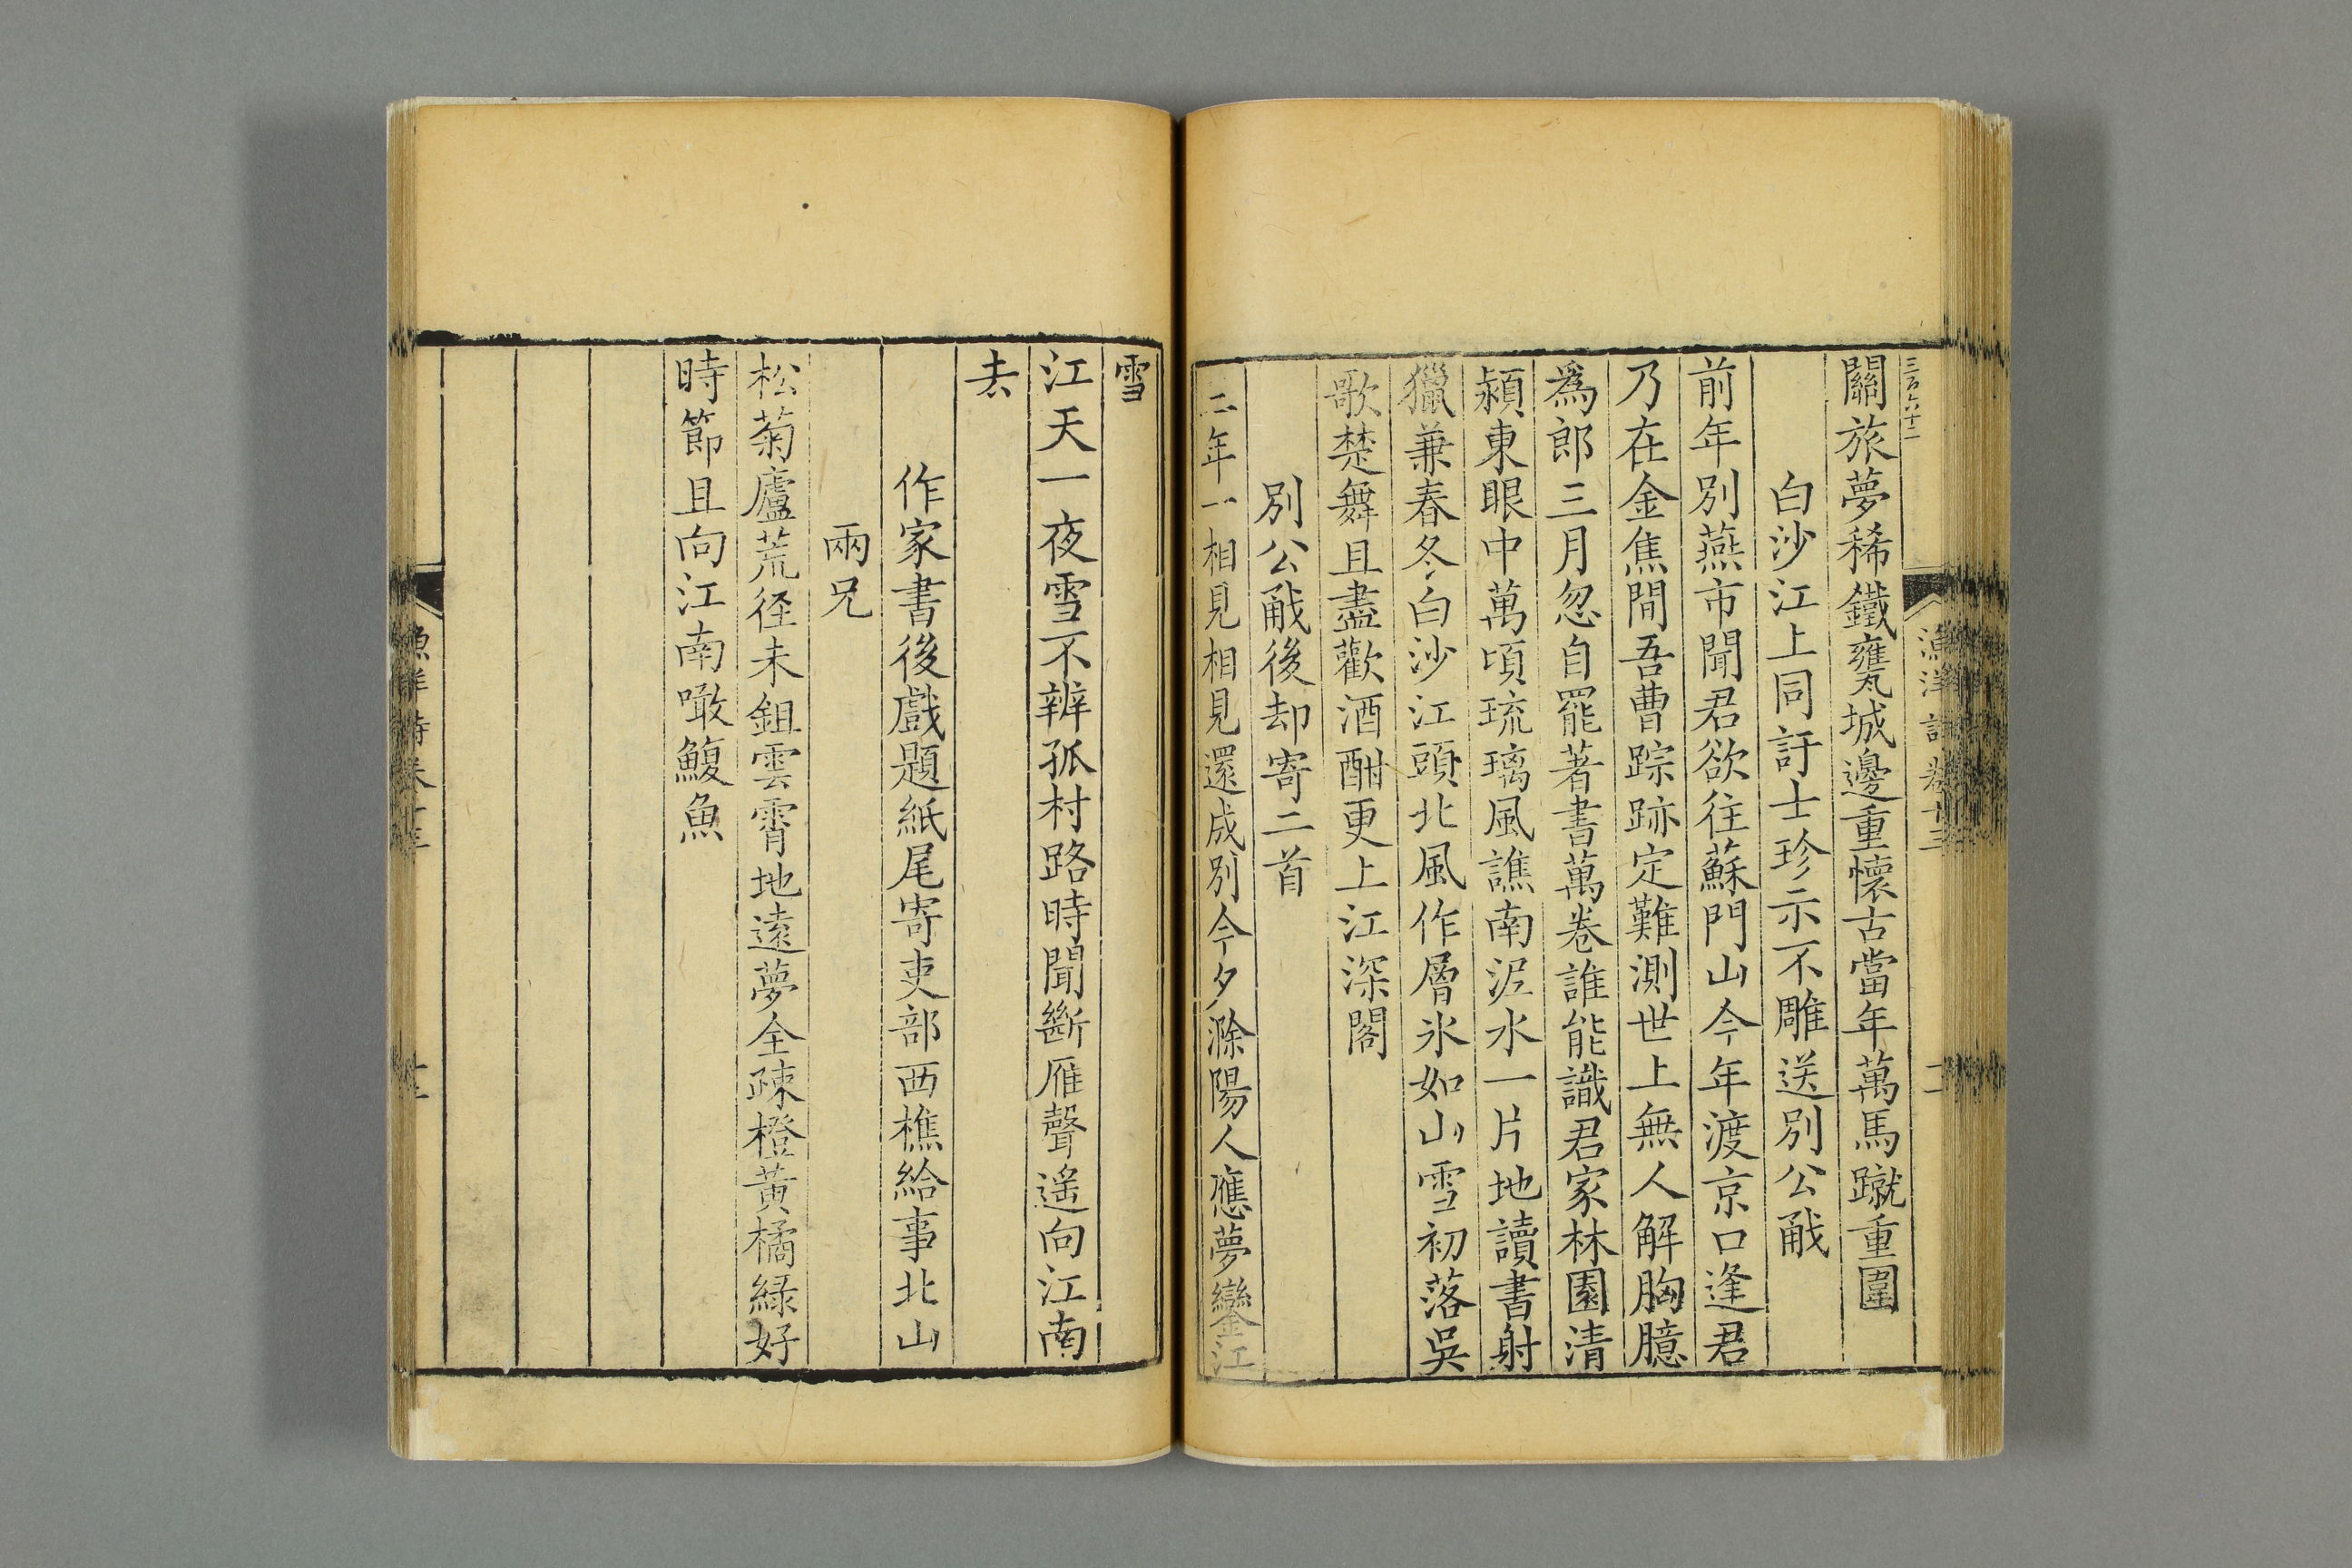 三百六十二
漁洋詩卷十三
關旅夢稀鐵甕城邊重懷古當年萬馬蹴重圍
白沙江上同訏士珍示不雕送別公㦷
前年別燕市聞君欲往蘇門山今年渡京口逢君
乃在金焦間吾曹踪跡定難測世上無人解胸臆
爲郎三月忽自罷著書萬卷誰能識君家林園清
潁東眼中萬頃琉璃風譙南泥水一片地讀書射
獵兼春冬白沙江頭北風作層氷如山雪初落吳
歌楚舞且盡歡酒酣更上江深閣
別公㦷後却寄二首
二年一相見相見還成別今夕滁陽人應夢鑾江
雪
江天一夜雪不辨孤村路時聞斷雁聲遙向江南
去
作家書後戲題紙尾寄吏部西樵給事北山
兩兄
松菊廬荒径未鉏雲霄地遠夢全踈橙黃橘綠好
時節且向江南噉鰒魚
漁洋詩卷十三